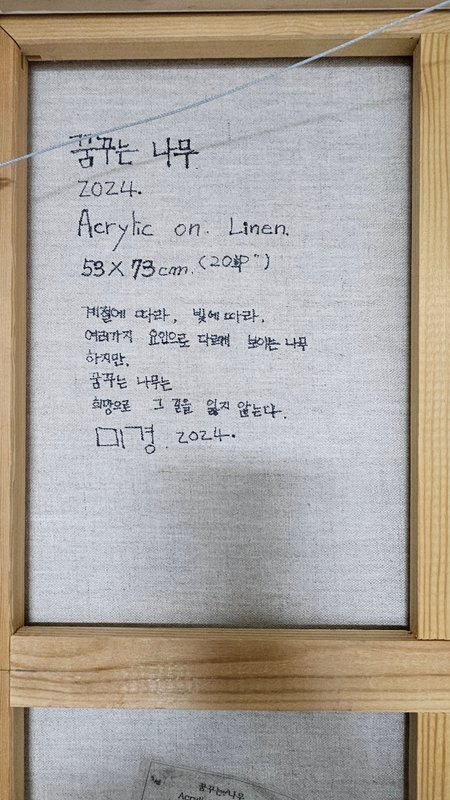 꿈꾸는 나무
2024.
Acrylic on. Linen.
53 X 73 cm. (20P")
계절에 따라, 빛에 따라,
여러가지 요인으로 다르게 보이는 나무
하지만,
꿈꾸는 나무는
희망으로 그 길을 잃지 않는다.
미경. 2024.
꿈꾸는 나무